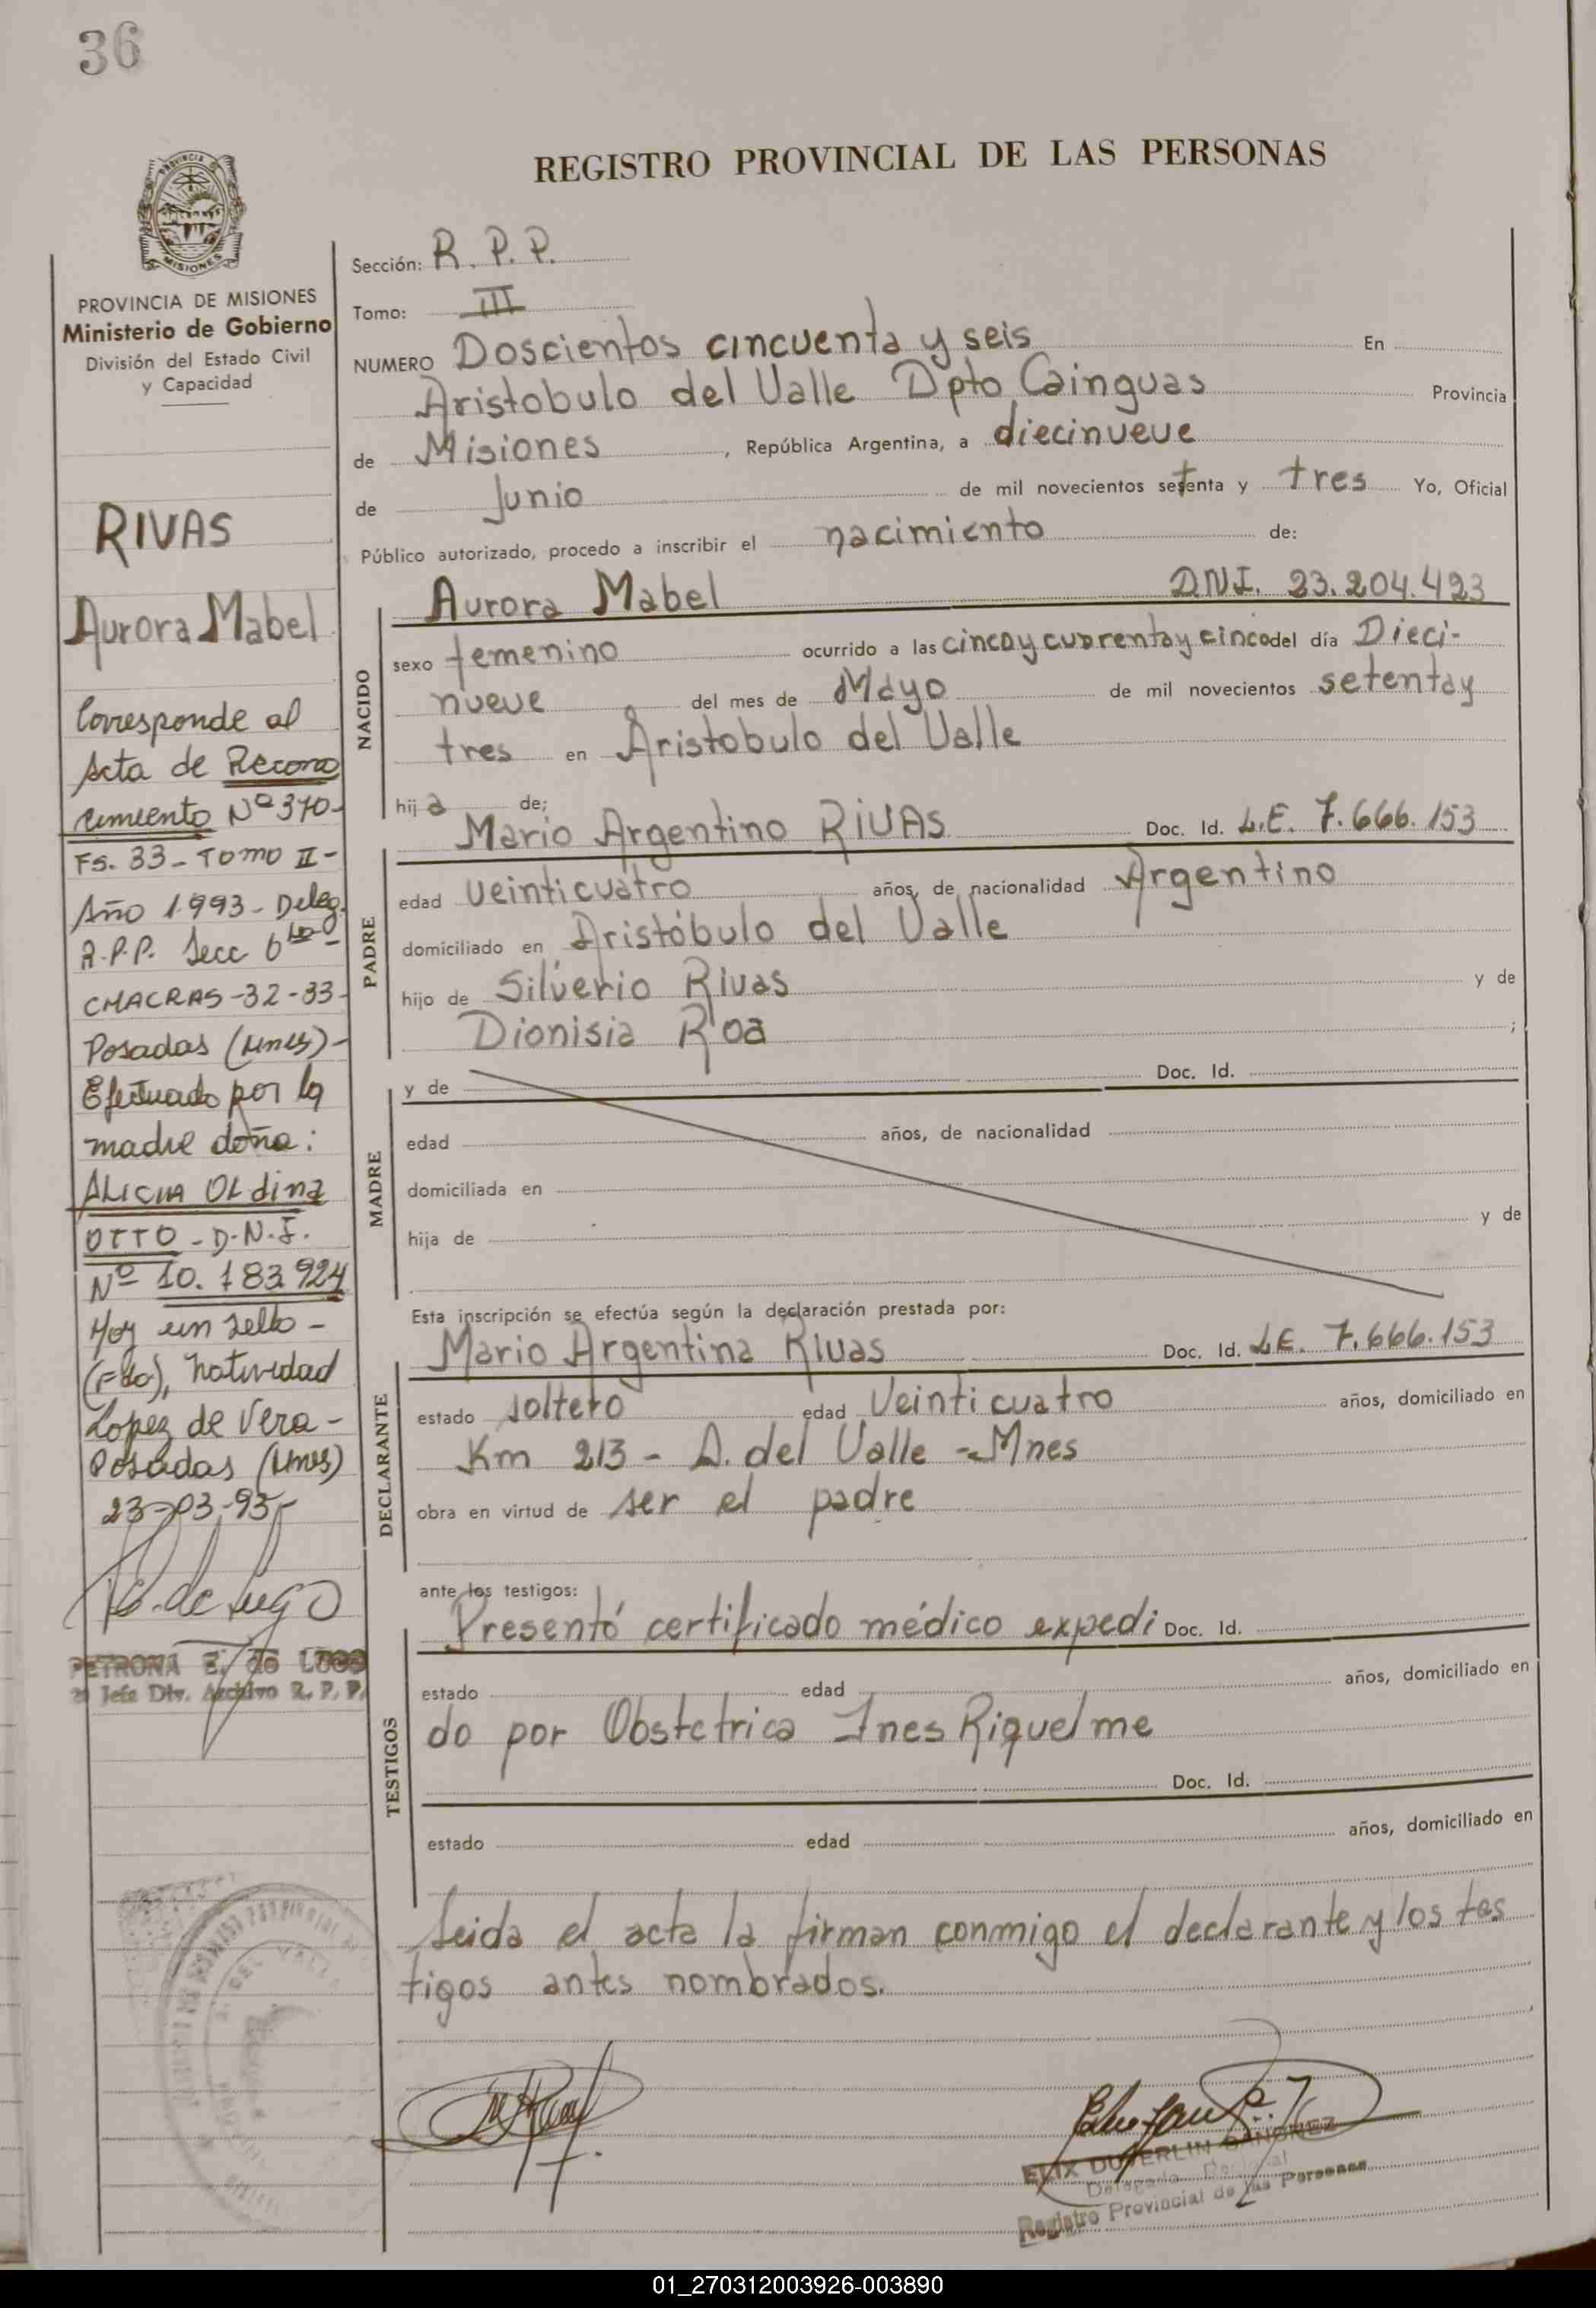 36
REGISTRO PROVINCIAL DE LAS PERSONAS
PROVINCIA DE MISIONES
Ministerio de Gobierno
División del Estado Civil
y Capacidad
RIVAS
Aurora Mabel
Corresponde al
Acta de Recono
cimiento Nº 370-
Fs. 33 - TOMO II -
Año 1993 - Deleg.
R.P.P. Secc 6ta -
CHACRAS - 32 - 33 -
Posadas (Mnes) -
Efectuado por la
madre doña:
ALICIA OLdina
OTTO - D.N.I.
Nº 10.783.924
Hoy un sello -
(Fdo), Natividad
Lopez de Vera -
Posadas (Mnes)
23-03-95-
PETRONA E. de LUGO
Jefe Div. Archivo R. P. P.
Sección: R. P. P.
Tomo: III
NUMERO Doscientos cincuenta y seis En
Aristobulo del Valle Dpto Cainguas Provincia
de Misiones, República Argentina, a diecinueve
de Junio de mil novecientos setenta y tres Yo, Oficial
Público autorizado, procedo a inscribir el nacimiento de:
Aurora Mabel DNI. 23.204.423
NACIDO
sexo femenino ocurrido a las cinco y cuarenta y cinco del día Dieci-
nueve del mes de Mayo de mil novecientos setenta y
tres en Aristobulo del Valle
hija de;
Mario Argentino RIVAS Doc. Id. L.E. 7.666.153
PADRE
edad veinticuatro años, de nacionalidad Argentino
domiciliado en Aristóbulo del Valle
hijo de Silverio Rivas y de
Dionisia Roa ;
y de Doc. Id.
MADRE
edad años, de nacionalidad
domiciliada en
hija de y de
Esta inscripción se efectúa según la declaración prestada por:
Mario Argentina Rivas Doc. Id. L.E. 7.666.153
DECLARANTE
estado soltero edad Veinticuatro años, domiciliado en
Km 213 - A. del Valle - Mnes
obra en virtud de ser el padre
ante los testigos:
Presentó certificado médico expedi Doc. Id.
TESTIGOS
estado edad años, domiciliado en
do por Obstetrica Ines Riquelme
Doc. Id.
estado edad años, domiciliado en
Leida el acta la firman conmigo el declarante y los tes
tigos antes nombrados.
SANCHEZ
Registro Provincial de las Personas
01_270312003926-003890